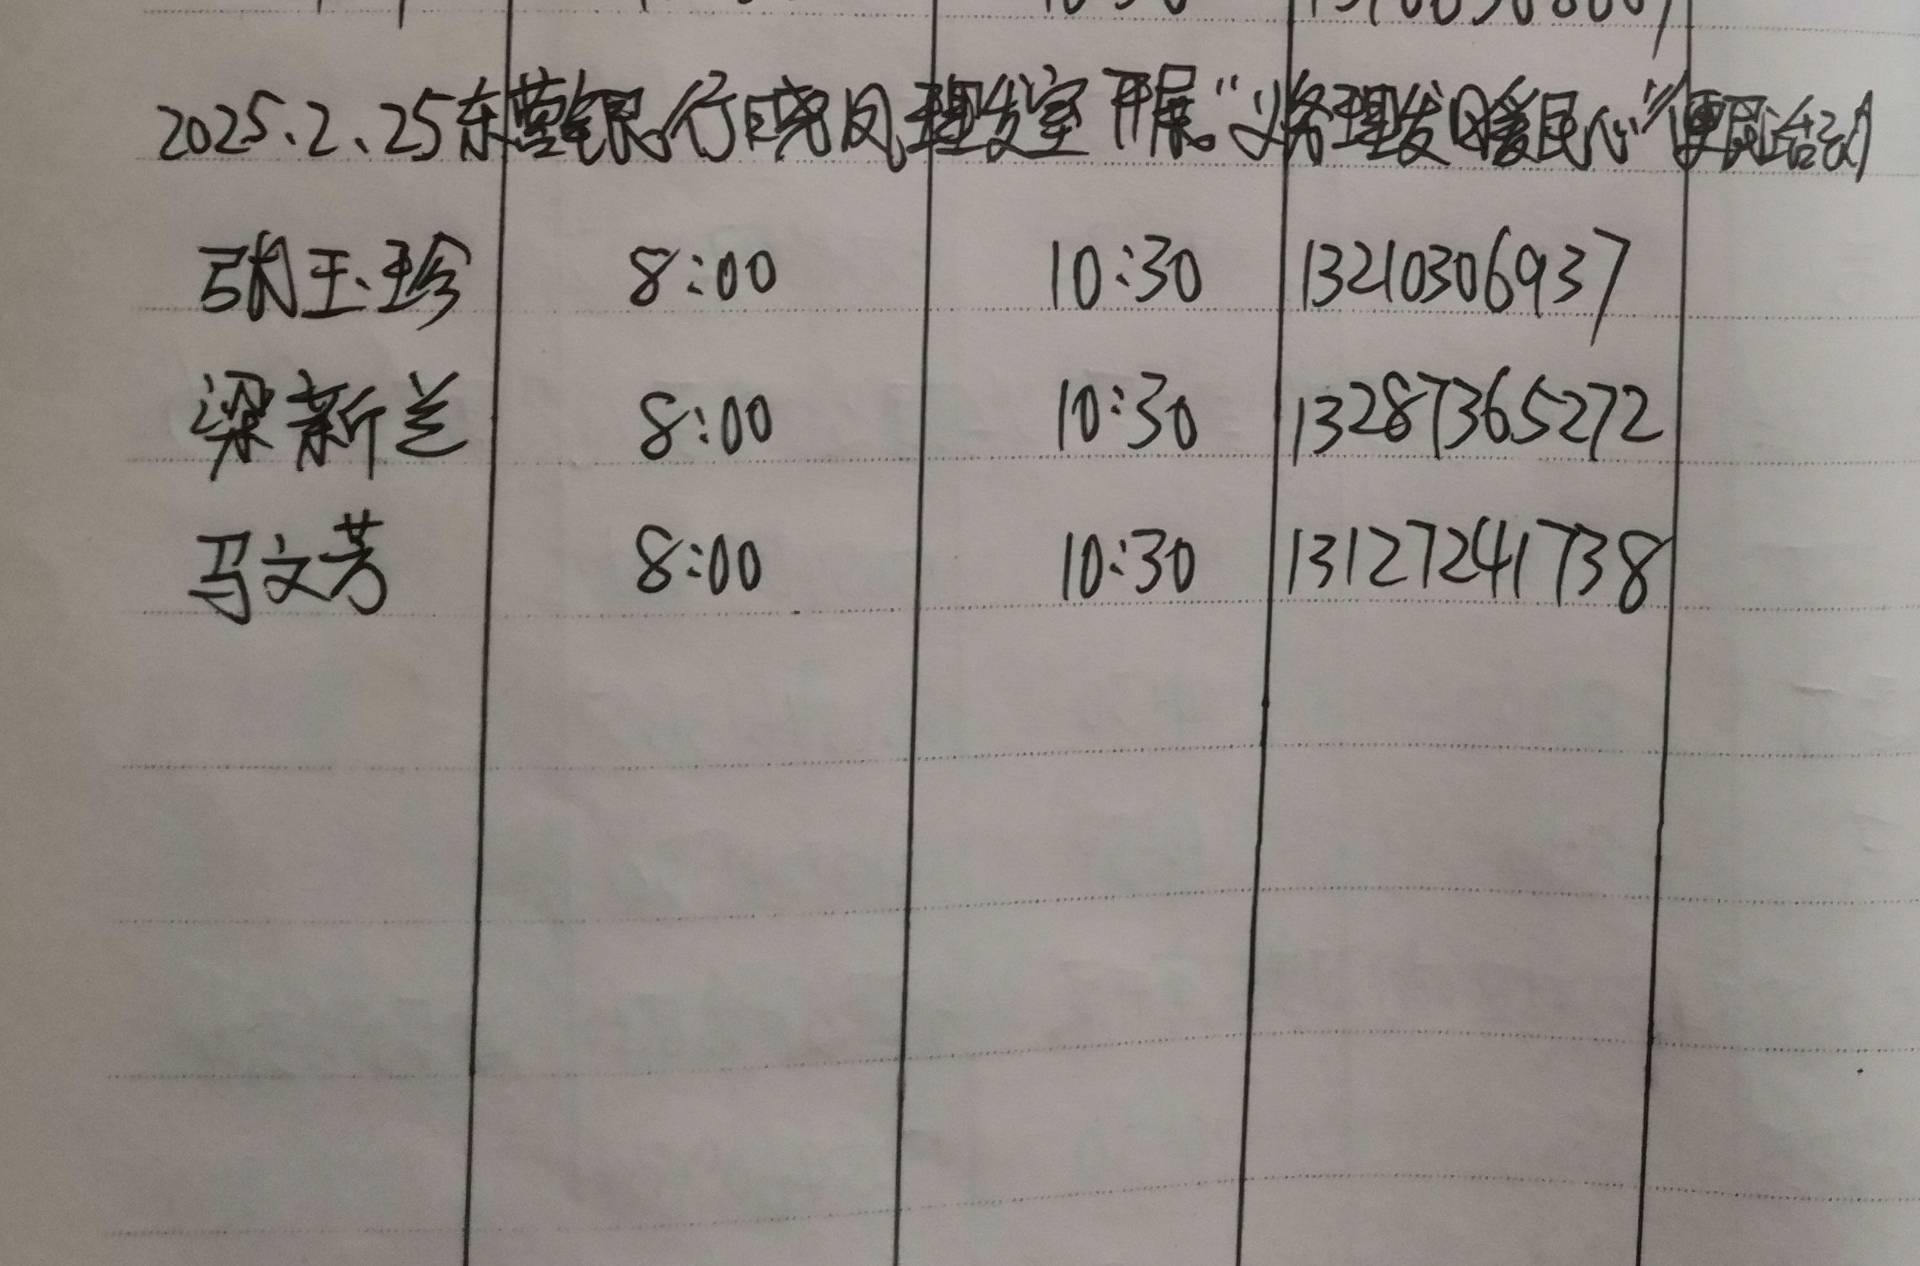 2025.2.25东营银行晓凤理发室开展“义务理发暖民心”便民活动
张玉珍 8:00 10:30 13210306937
梁新兰 8:00 10:30 13287365272
马文芳 8:00 10:30 13127241738